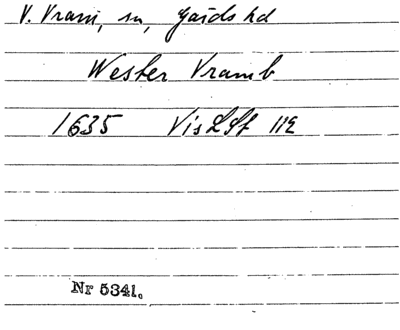 V. Vram, sn, Gärds hd
Wester Vramb
1635 VisLSt 112
Nr 5341.